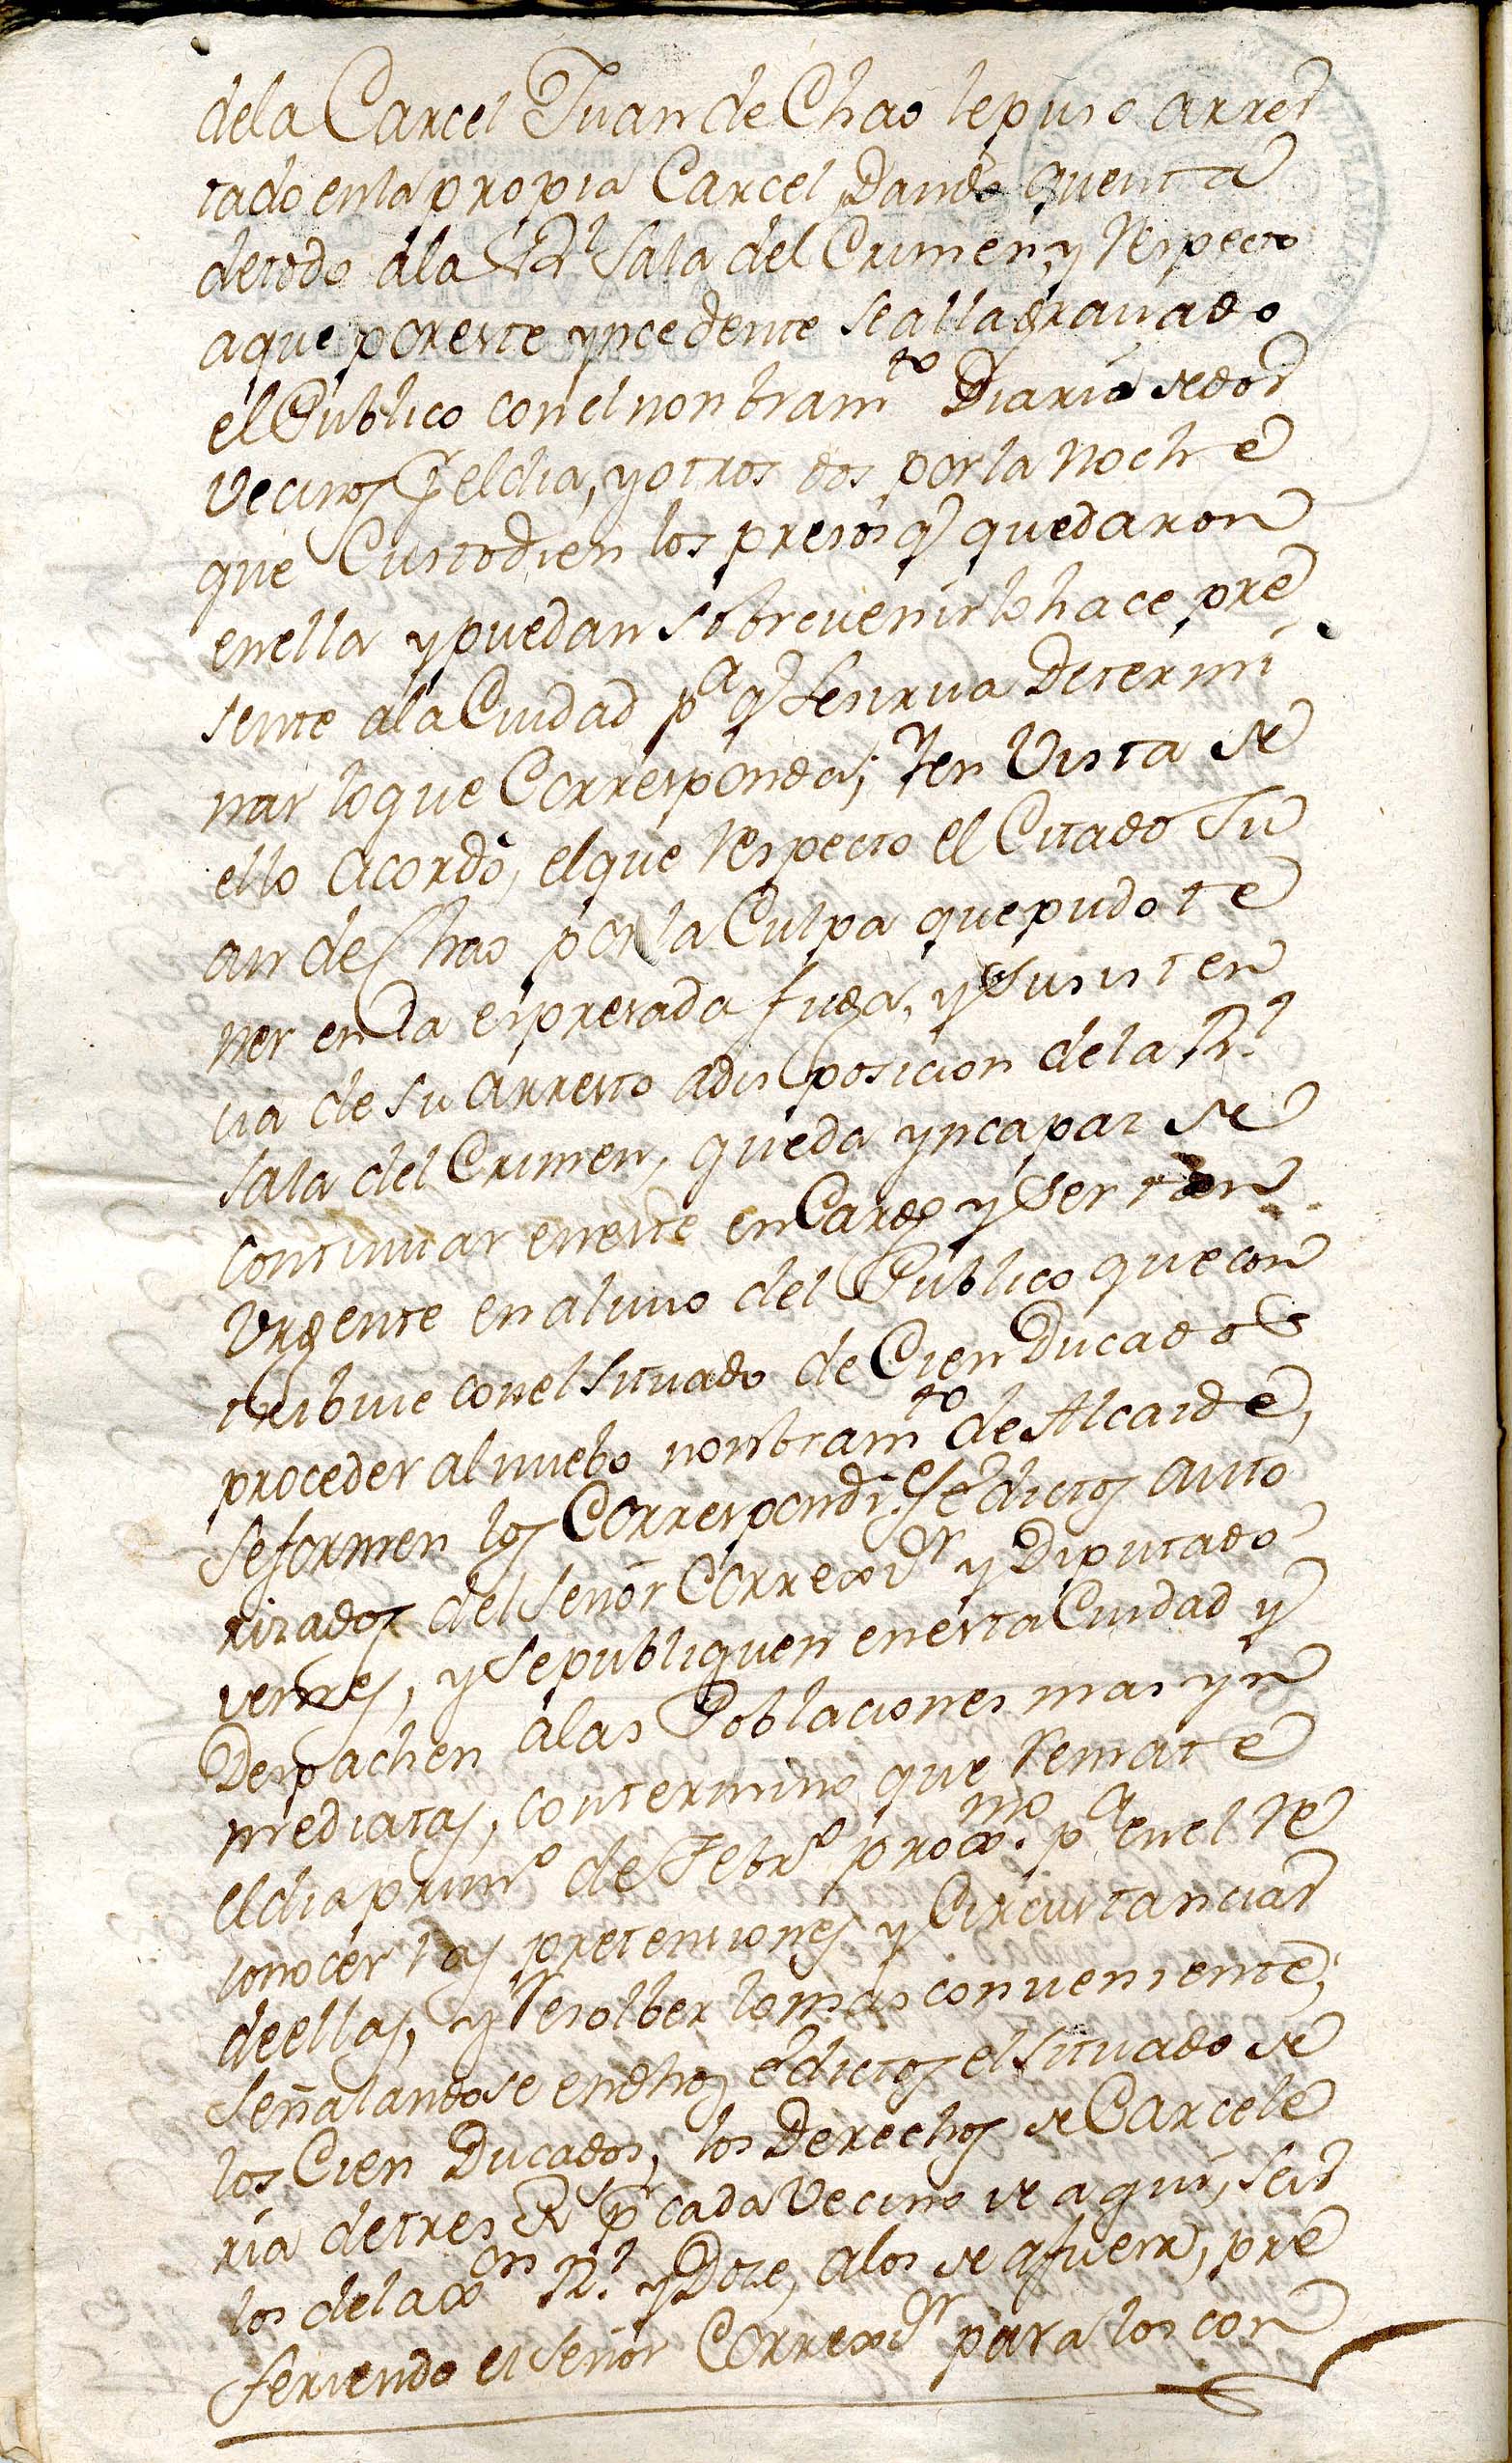 dela Carcel Juan de Chao lepuso arres
tado enla propia Carcel, Dando quenta
detodo ala Rl Sala del Crimen, y Respecto
aque poreste yncedente sealla gravado
el Publico conel nonbramto Diario de dos
Vecinos pr eldia, y otros dos por la Noche
que Custodien los presos q quedaron
enella y puedan sobrevenir lo hace pre
sente ala Ciudad pa q Sesirva Determi
nar loque Corresponda; Yen Vista de
ello Acordo, elque Respecto el Citado Ju
an de Chao por la Culpa que pudo te
ner en la espresada fuga, y Susisten
cia de su arresto adisposicion dela Rl
Sala del Crimen, queda yncapaz de
continuar eneste enCargo y Ser tan
Urgente en alivio del Publico que con
tribuie conel Situado de Cien Ducados
proceder al nuebo nombramto de Alcaide,
Seformen los Correspondtes edictos auto
rizados del Señor Correxdr y Diputado
vernes, y Sepubliquen enesta Ciudad y
Despachen alas Poblaciones mas yn
mediatas, contermino que Remate
eldia primo de Febro proxmo pa enel Re
conocer las pretensiones y Circustancias
deellas, y Resolber lomas conveniente;
Señalandose endhos edictos el Situado de
los Cien Ducados, los Derechos de Carcele
ria detres Rs pr cada Vecino de aqui, seis
los delaxon Rl y Doze, alos de afuera, pre
feriendo el Señor Correxdr para los con